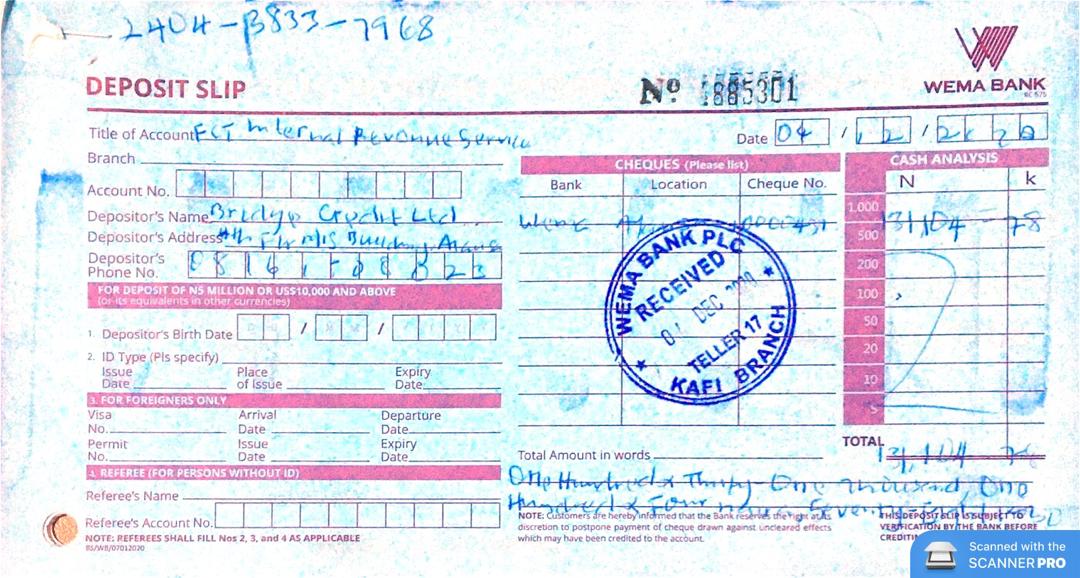 2404-B833-7968
DEPOSIT SLIP
Nº 1885301
WEMA BANK
RC 575
Title of Account FCT Internal Revenue Service
Date 04 / 12 / 2020
Branch
Account No.
Depositor's Name Bridge Credit Ltd
Depositor's Address 4th Flr MJS Building,
Depositor's
Phone No.
FOR DEPOSIT OF N5 MILLION OR US$10,000 AND ABOVE
(or its equivalents in other currencies)
1. Depositor's Birth Date D D / M M / Y Y Y Y
2. ID Type (Pls specify)
Issue Date Place of Issue Expiry Date
3. FOR FOREIGNERS ONLY
Visa No. Arrival Date Departure Date
Permit No. Issue Date Expiry Date
4. REFEREE (FOR PERSONS WITHOUT ID)
Referee's Name
Referee's Account No.
NOTE: REFEREES SHALL FILL Nos 2, 3, and 4 AS APPLICABLE
BS/WB/07012020
CHEQUES (Please list)
Bank Location Cheque No.
Wema
WEMA BANK PLC
RECEIVED
04 DEC 2020
TELLER 17
KAFI BRANCH
Total Amount in words
One Hundred & Thirty-One Thousand One
Hundred & Four Naira Seventy-Eight
NOTE: Customers are hereby informed that the Bank reserves the right at its
discretion to postpone payment of cheque drawn against uncleared effects
which may have been credited to the account.
CASH ANALYSIS
N k
1,000
131,104 78
500
200
100
50
20
10
5
TOTAL 131,104 78
THIS DEPOSIT SLIP IS SUBJECT TO
VERIFICATION BY THE BANK BEFORE
Scanned with the
SCANNER PRO